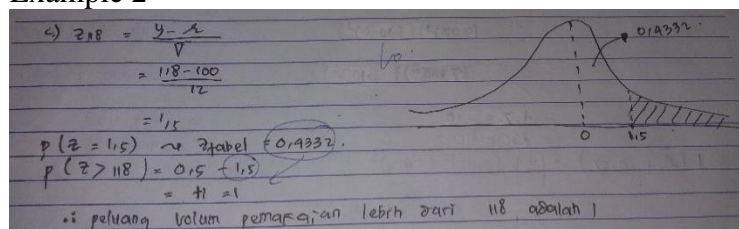 Example 2
c) Z118 = y - x / σ
= 118 - 100 / 12
= 1,5
p (Z = 1,5) ~> Ztabel = 0,4332.
p (Z > 118) = 0,5 - 1,5
= +1 = 1
∴ peluang volum pemakaian lebih dari 118 adalah 1
0,4332.
0
1,5